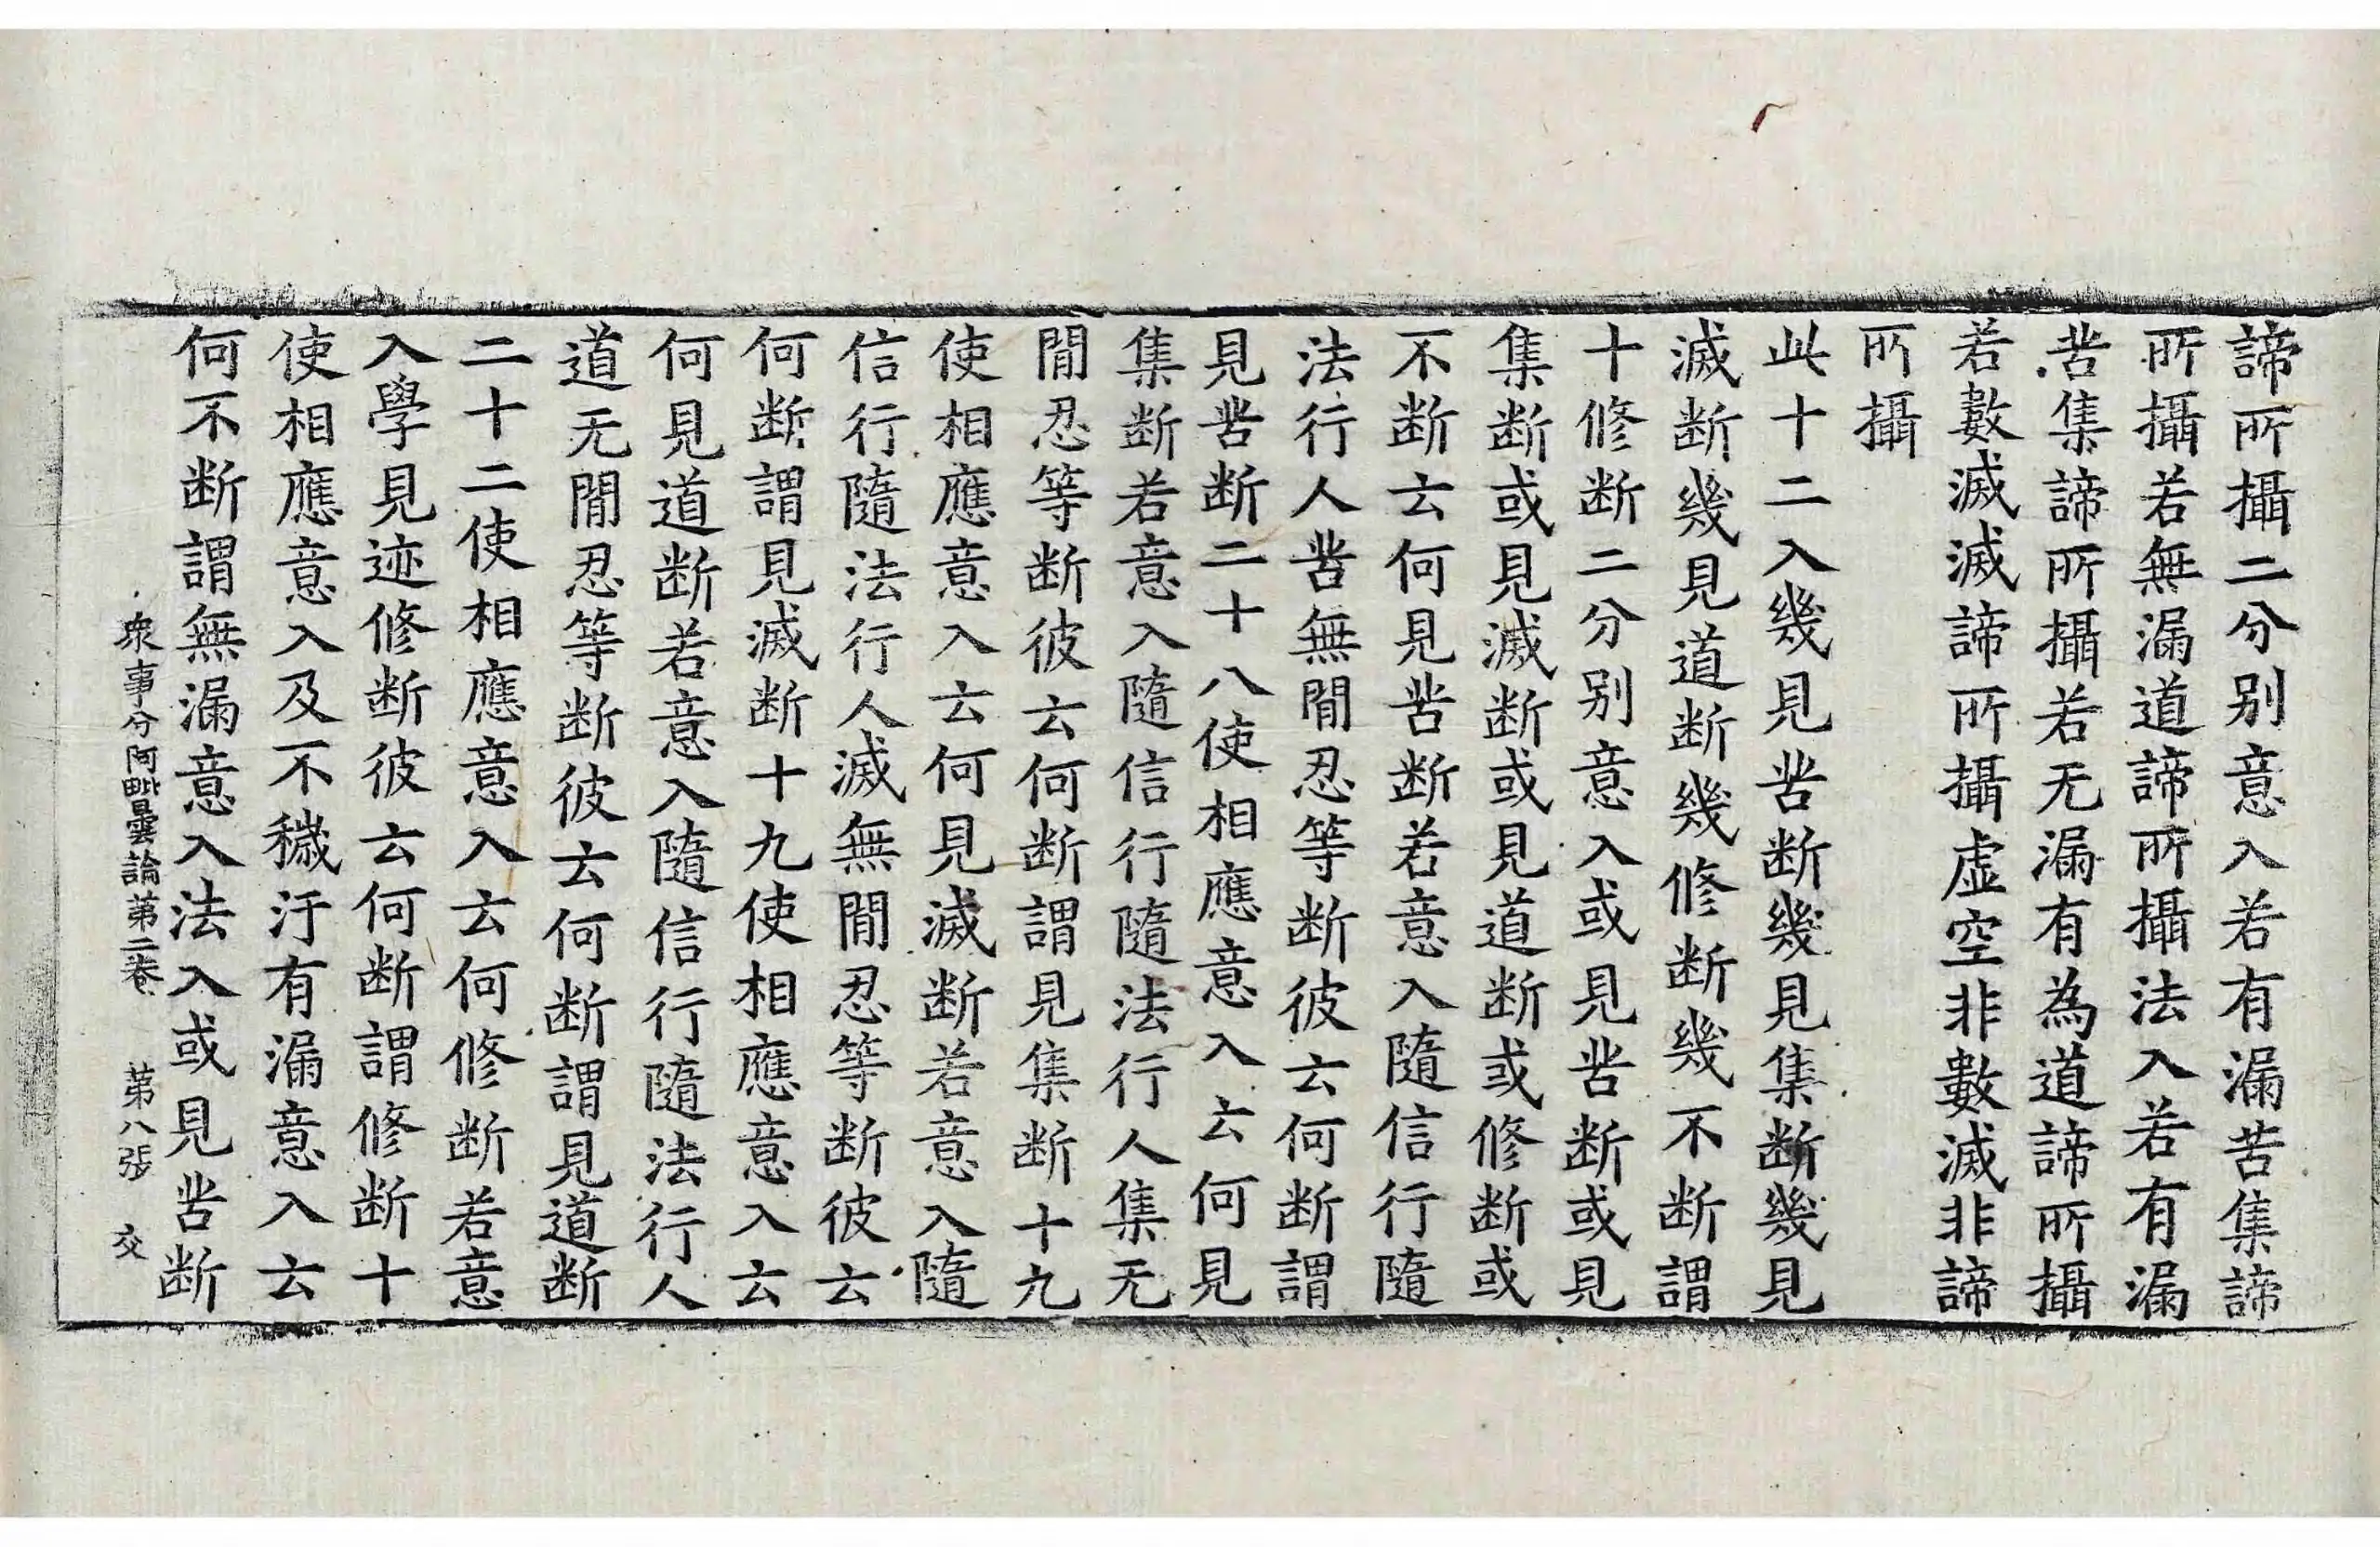 諦所攝二分别意入若有漏苦集諦
所攝若無漏道諦所攝法入若有漏
苦集諦所攝若无漏有為道諦所攝
若數滅滅諦所攝虚空非數滅非諦
所攝
此十二入幾見苦断幾見集断幾見
滅断幾見道断幾修断幾不断謂
十修断二分别意入或見苦断或見
集断或見滅断或見道断或修断或
不断云何見苦断若意入隨信行隨
法行人苦無間忍等断彼云何断謂
見苦断二十八使相應意入云何見
集断若意入隨信行隨法行人集无
間忍等断彼云何断謂見集断十九
使相應意入云何見滅断若意入隨
信行隨法行人滅無間忍等断彼云
何断謂見滅断十九使相應意入云
何見道断若意入隨信行隨法行人
道无間忍等断彼云何断謂見道断
二十二使相應意入云何修断若意
入學見迹修断彼云何断謂修断十
使相應意入及不穢汙有漏意入云
何不断謂無漏意入法入或見苦断
衆事分阿毗曇論第二卷 第八張 交